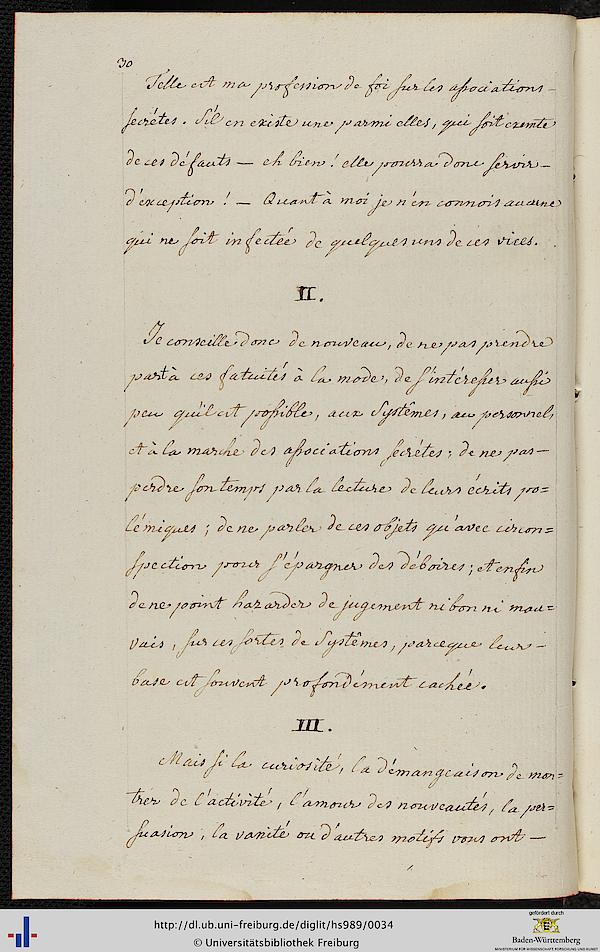 30
Telle est ma profession de foi sur les associations
secrétes. S'il en existe une parmi elles, qui soit exemte
de ces défauts — eh bien! elle pourra donc servir —
d'exception! — Quant à moi je n'en connois aucune
qui ne soit infectée de quelques uns de ces vices.
II.
Je conseille donc de nouveau, de ne pas prendre
part à ces fatuités à la mode, de s'intéresser aussi
peu qu'il est possible, aux Systêmes, au personnel,
et à la marche des associations secrétes; de ne pas —
perdre son temps par la lecture de leurs écrits po=
lémiques; de ne parler de ces objets qu'avec circon=
spection pour s'épargner des déboires; et enfin
de ne point hazarder de jugement ni bon ni mau=
vais, sur ces sortes de Systêmes, parceque leur —
base est souvent profondément cachée.
III.
Mais si la curiosité, la démangeaison de mon=
trer de l'activité, l'amour des nouveautés, la per=
suasion, la vanité ou d'autres motifs vous ont —
http://dl.ub.uni-freiburg.de/diglit/hs989/0034
© Universitätsbibliothek Freiburg
gefördert durch
Baden-Württemberg
MINISTERIUM FÜR WISSENSCHAFT, FORSCHUNG UND KUNST